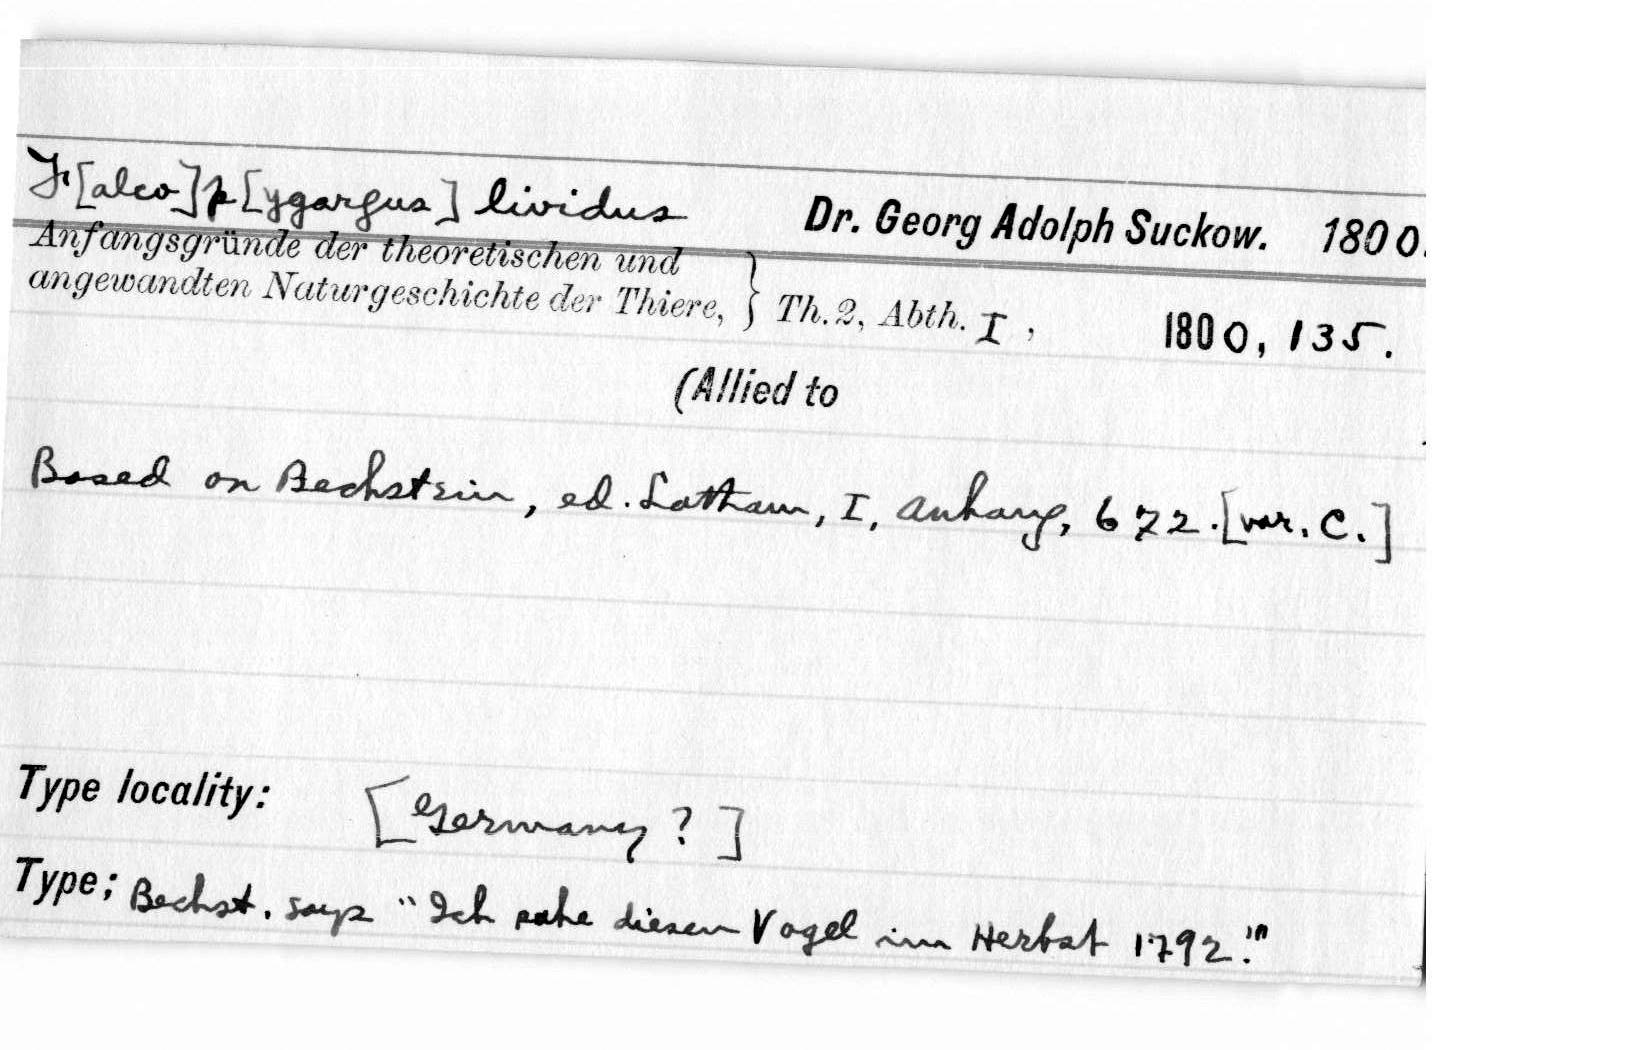 F.[alco] p[ygargus] lividus Dr. Georg Adolph Suckow. 1800.
Anfangsgründe der theoretischen und
angewandten Naturgeschichte der Thiere, } Th. 2, Abth. I, 1800, 135.
(Allied to
Based on Bechstein, ed. Latham, I, Anhang, 672. [var. C.]
Type locality: [Germany?]
Type; Bechst. says "Ich sahe diesen Vogel im Herbst 1792."